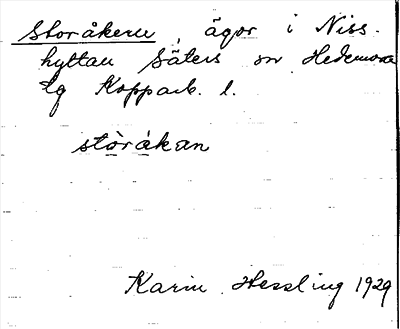 Storåkern, ägor i Niss-
hyttan Säters sn Hedemora
tg Kopparb. l.
stòråkan
Karin Hessling 1929